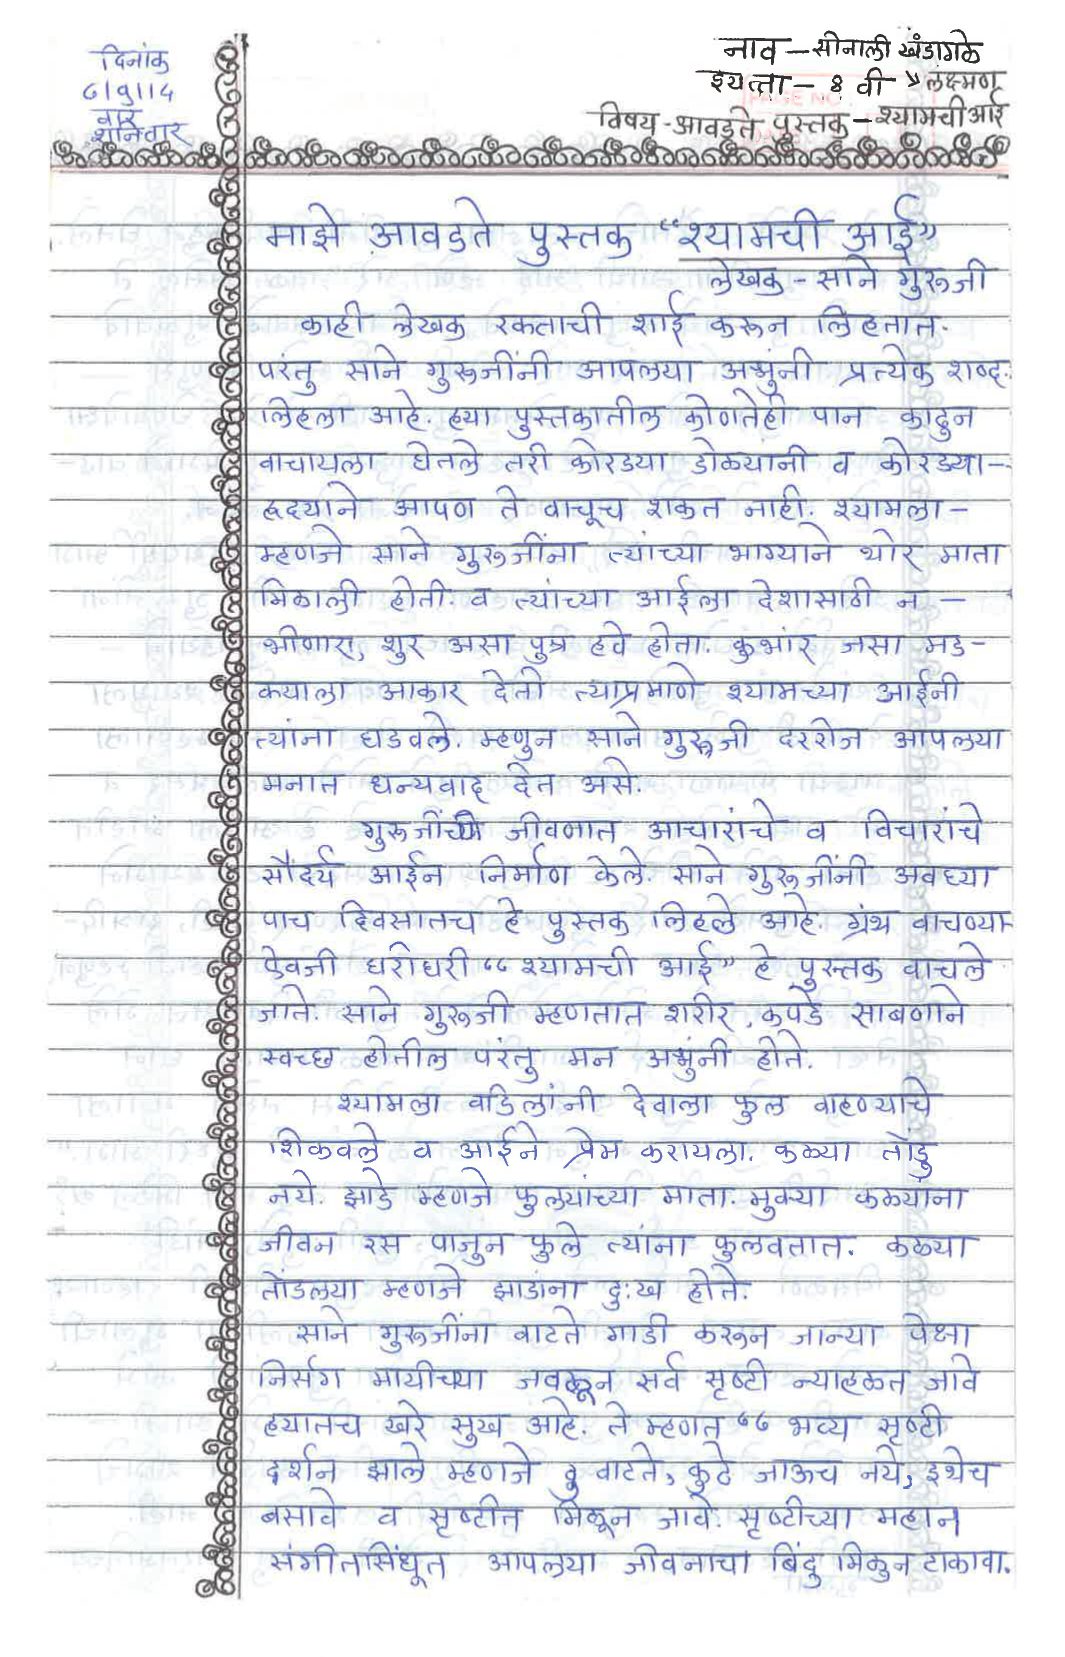 दिनांक
६।९।१४
वार
शनिवार
नाव - सोनाली खंडागळे
इयत्ता - ८ वी » लक्ष्मण
विषय - आवडते पुस्तक - श्यामची आई
माझे आवडते पुस्तक “श्यामची आई”
लेखक - साने गुरूजी
काही लेखक रक्ताची शाई करून लिहतात.
परंतु साने गुरूजींनी आपल्या अश्रुंनी प्रत्येक शब्द
लिहला आहे. ह्या पुस्तकातील कोणतेही पान काढुन
वाचायला घेतले तरी कोरडया डोळ्यानी व कोरड्या-
हृदयाने आपण ते वाचूच शकत नाही. श्यामला -
म्हणजे साने गुरूजींना त्यांच्या भाग्याने थोर माता
मिळाली होती. व त्यांच्या आईला देशासाठी न -
भीणारा, शुर असा पुत्र हवे होता. कुंभार जसा मड-
क्याला आकार देतो त्याप्रमाणे श्यामच्या आईनी
त्यांना घडवले. म्हणुन साने गुरूजी दररोज आपल्या
मनात धन्यवाद देत असे.
गुरूजींच्या जीवणात आचारांचे व विचारांचे
सौंदर्य आईन निर्माण केले. साने गुरूजींनी अवघ्या
पाच दिवसातच हे पुस्तक लिहले आहे. ग्रंथ वाचण्या-
ऐवजी घरोघरी “श्यामची आई” हे पुस्तक वाचले
जाते. साने गुरूजी म्हणतात शरीर, कपडे साबणाने
स्वच्छ होतील परंतु मन अश्रुंनी होते.
श्यामला वडिलांनी देवाला फुल वाहण्याचे
शिकवले व आईने प्रेम करायला. कळ्या तोडु
नये. झाडे म्हणजे फुलयांच्या माता. मुक्या कळ्याना
जीवन रस पाजुन फुले त्यांना फुलवतात. कळ्या
तोडल्या म्हणजे झाडांना दु:ख होते.
साने गुरूजींना वाटते गाडी करून जान्या पेक्षा
निर्सग मायीच्या जवळून सर्व सृष्टी न्याहळत जावे
ह्यातच खरे सुख आहे. ते म्हणत “भव्य सृष्टी
दर्शन झाले म्हणजे वाटते, कुठे जाऊच नये, इथेच
बसावे व सृष्टीत मिळून जावे. सृष्टीच्या महान
संगीतसिंधूत आपल्या जीवनाचा बिंदु मिळुन टाकावा.